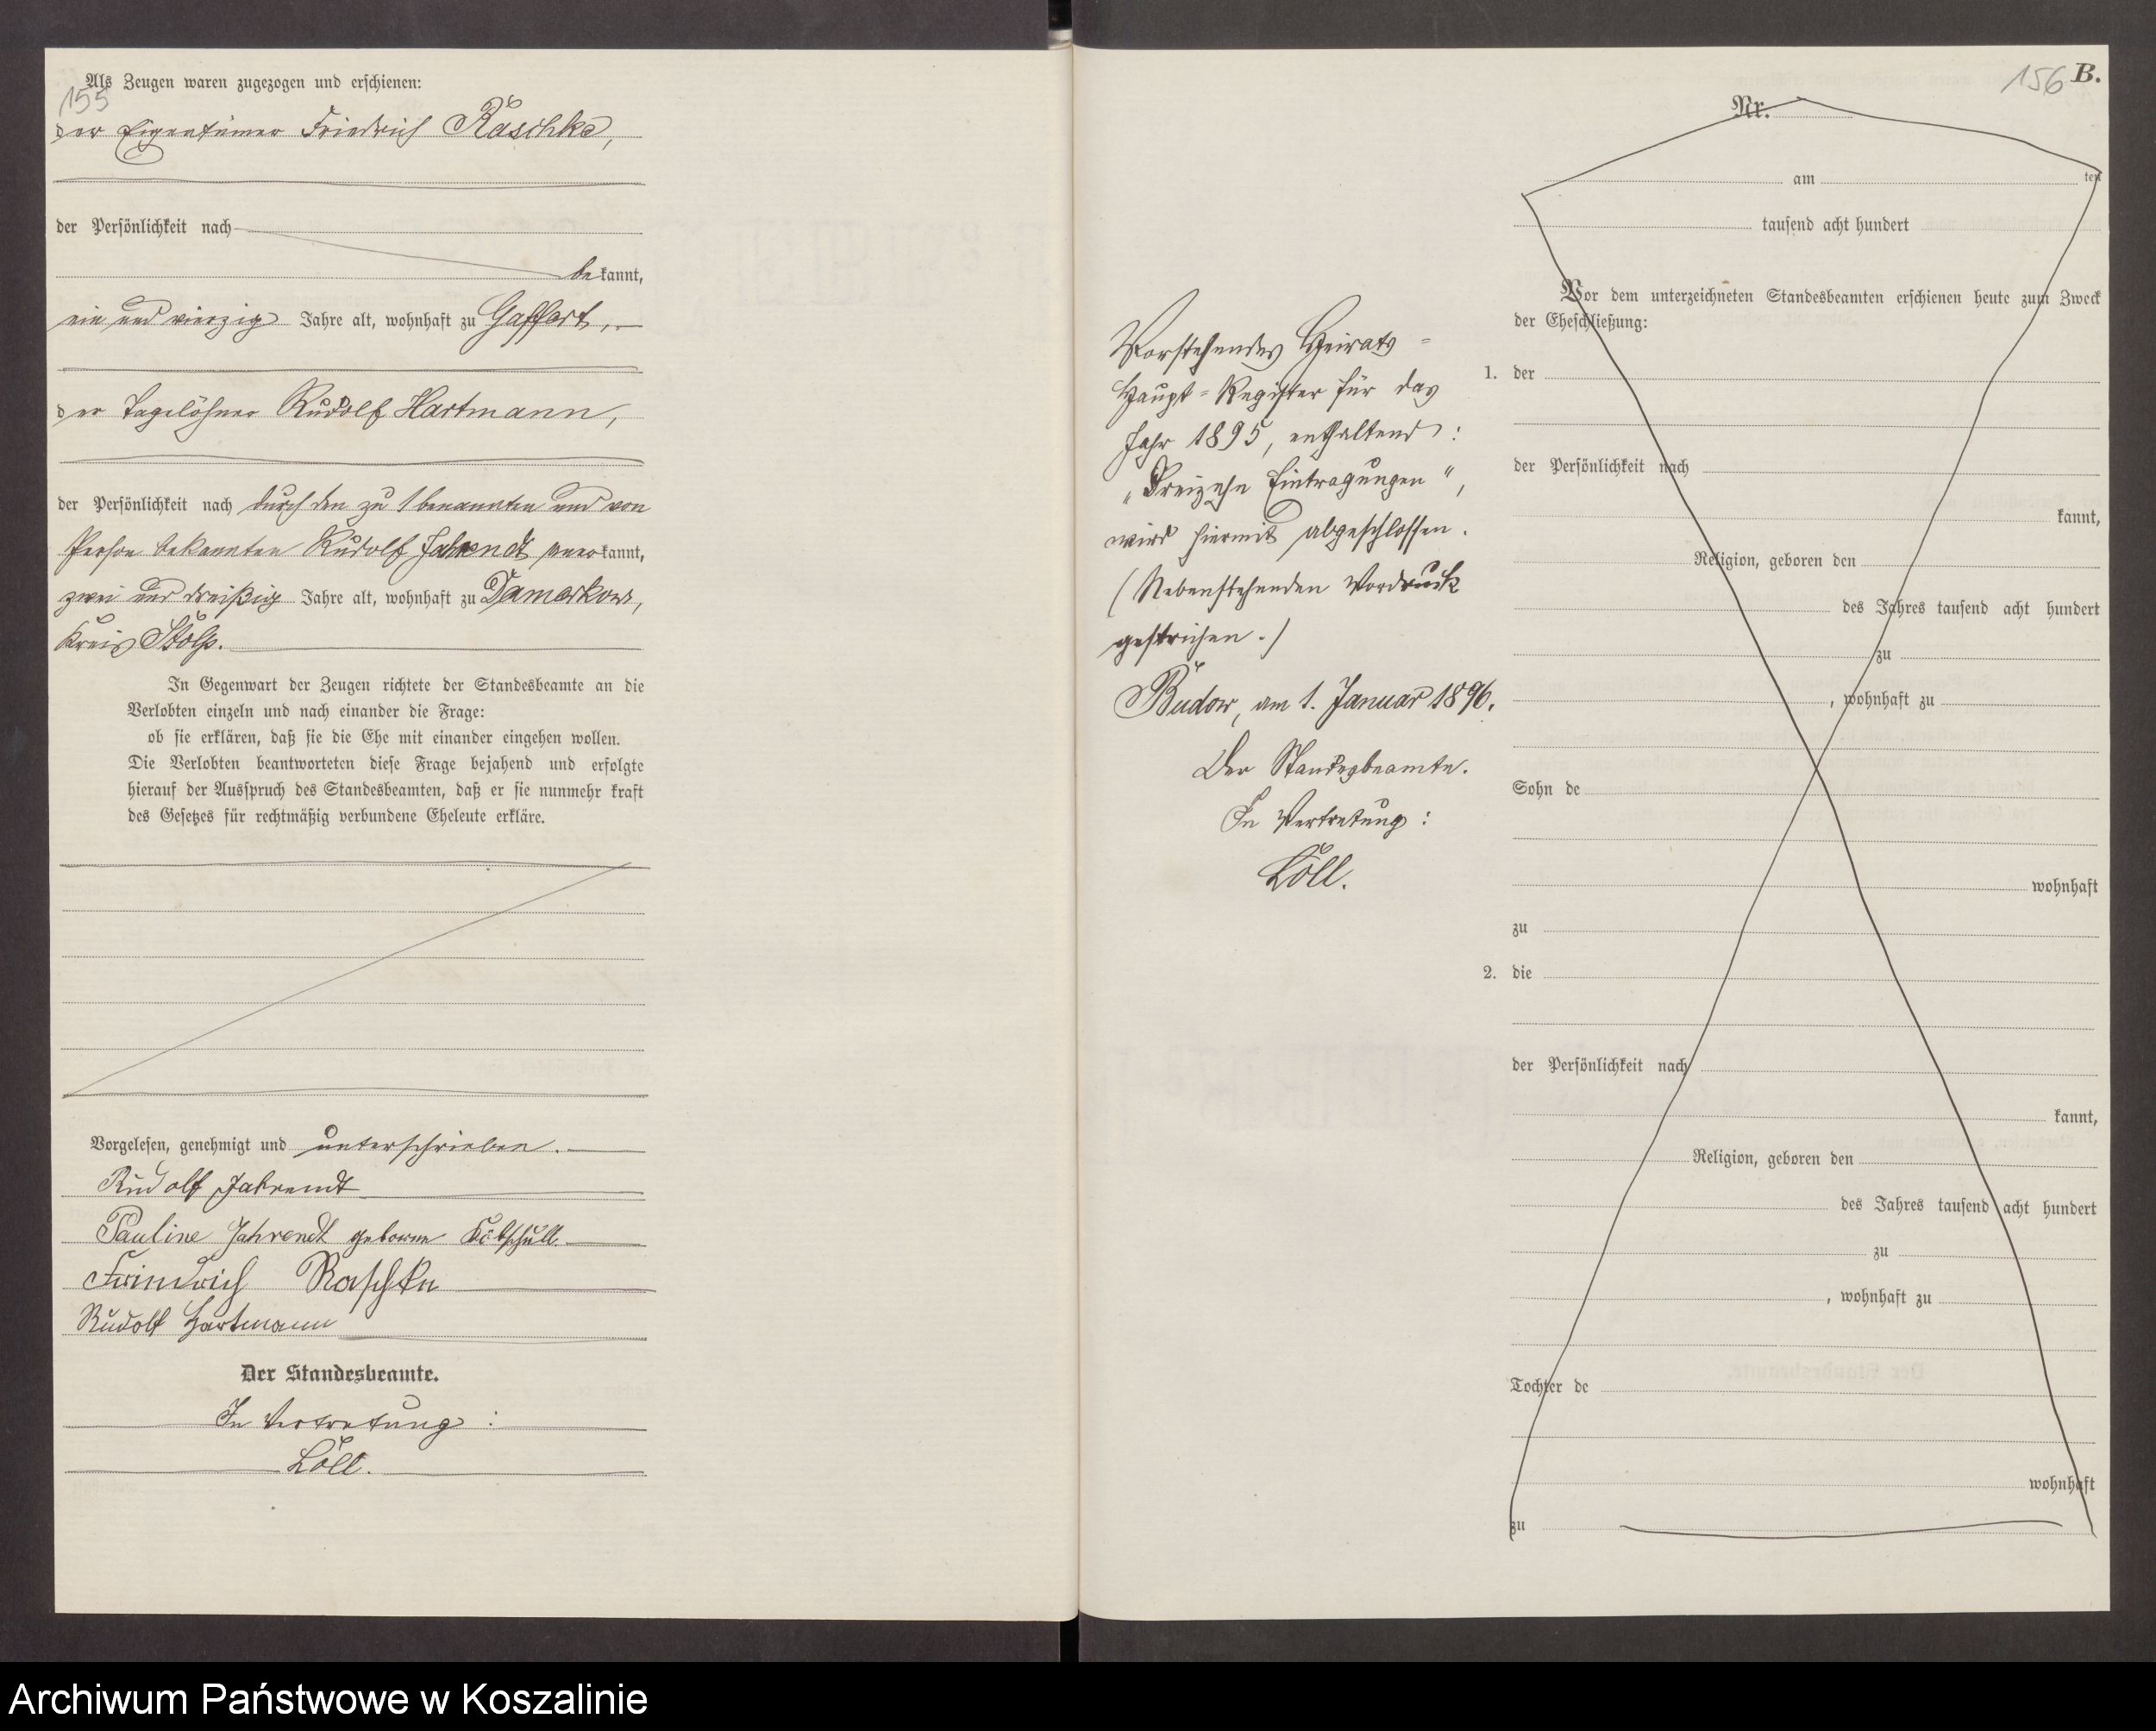 155
Als Zeugen waren zugezogen und erschienen:
der Eigentümer Friedrich Raschke,
der Persönlichkeit nach
bekannt,
ein und vierzig Jahre alt, wohnhaft zu Gaffert,
der Tagelöhner Rudolf Hartmann,
der Persönlichkeit nach durch den zu 1 benannten und von
Person bekannten Rudolf Jahrendt anerkannt,
zwei und dreißig Jahre alt, wohnhaft zu Damerkow,
Kreis Stolp.
In Gegenwart der Zeugen richtete der Standesbeamte an die
Verlobten einzeln und nach einander die Frage:
ob sie erklären, daß sie die Ehe mit einander eingehen wollen.
Die Verlobten beantworteten diese Frage bejahend und erfolgte
hierauf der Ausspruch des Standesbeamten, daß er sie nunmehr kraft
des Gesetzes für rechtmäßig verbundene Eheleute erkläre.
Vorgelesen, genehmigt und unterschrieben.
Rudolf Jahrendt
Pauline Jahrendt geborene
Friedrich Raschke
Rudolf Hartmann
Der Standesbeamte.
In Vertretung:
Löll.
156 B.
Vorstehendes Heirats=
Haupt=Register für das
Jahr 1895, enthaltend:
„Dreizehn Eintragungen",
wird hiermit abgeschlossen.
(Nebenstehenden Vordruck
gestrichen.)
Budow, am 1. Januar 1896.
Der Standesbeamte.
In Vertretung:
Löll.
Nr.
am ten
tausend acht hundert
Vor dem unterzeichneten Standesbeamten erschienen heute zum Zweck
der Eheschließung:
1. der
der Persönlichkeit nach
kannt,
Religion, geboren den
des Jahres tausend acht hundert
zu
, wohnhaft zu
Sohn de
wohnhaft
zu
2. die
der Persönlichkeit nach
kannt,
Religion, geboren den
des Jahres tausend acht hundert
zu
, wohnhaft zu
Tochter de
wohnhaft
zu
Archiwum Państwowe w Koszalinie